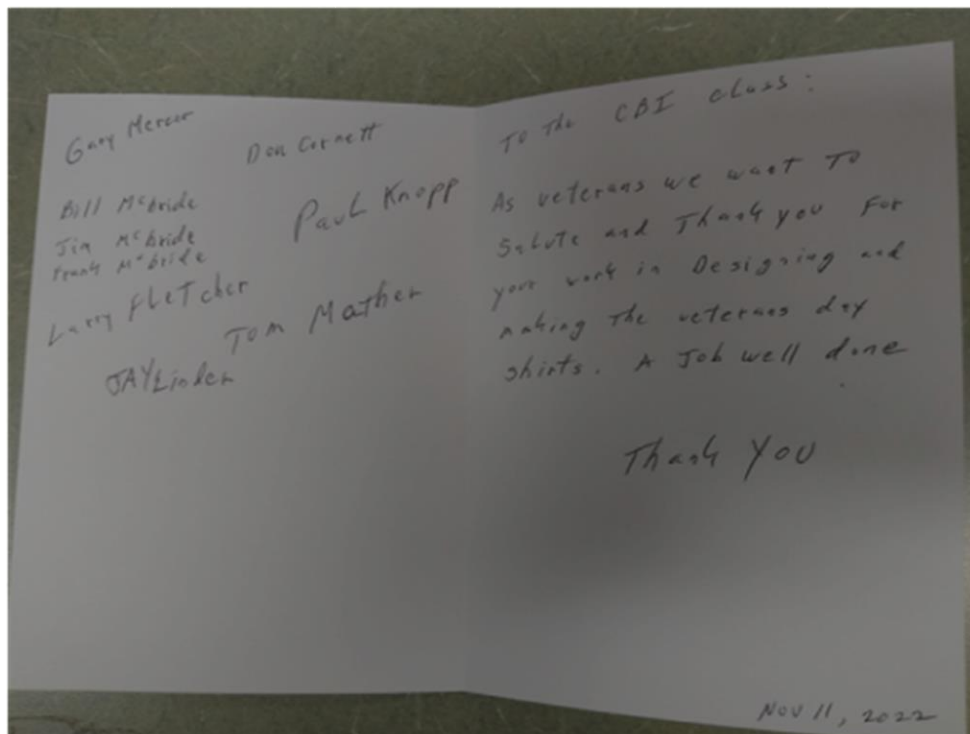 Gary Mercer
Don Cornett
Bill McBride
Jim McBride
Frank McBride
Paul Knopp
Larry Fletcher
Tom Mather
JAY Linder
To the CBI class:
As veterans we want To
Salute and Thank you For
your work in Designing and
making The veterans day
shirts. A Job well done
.
Thank You
Nov 11, 2022